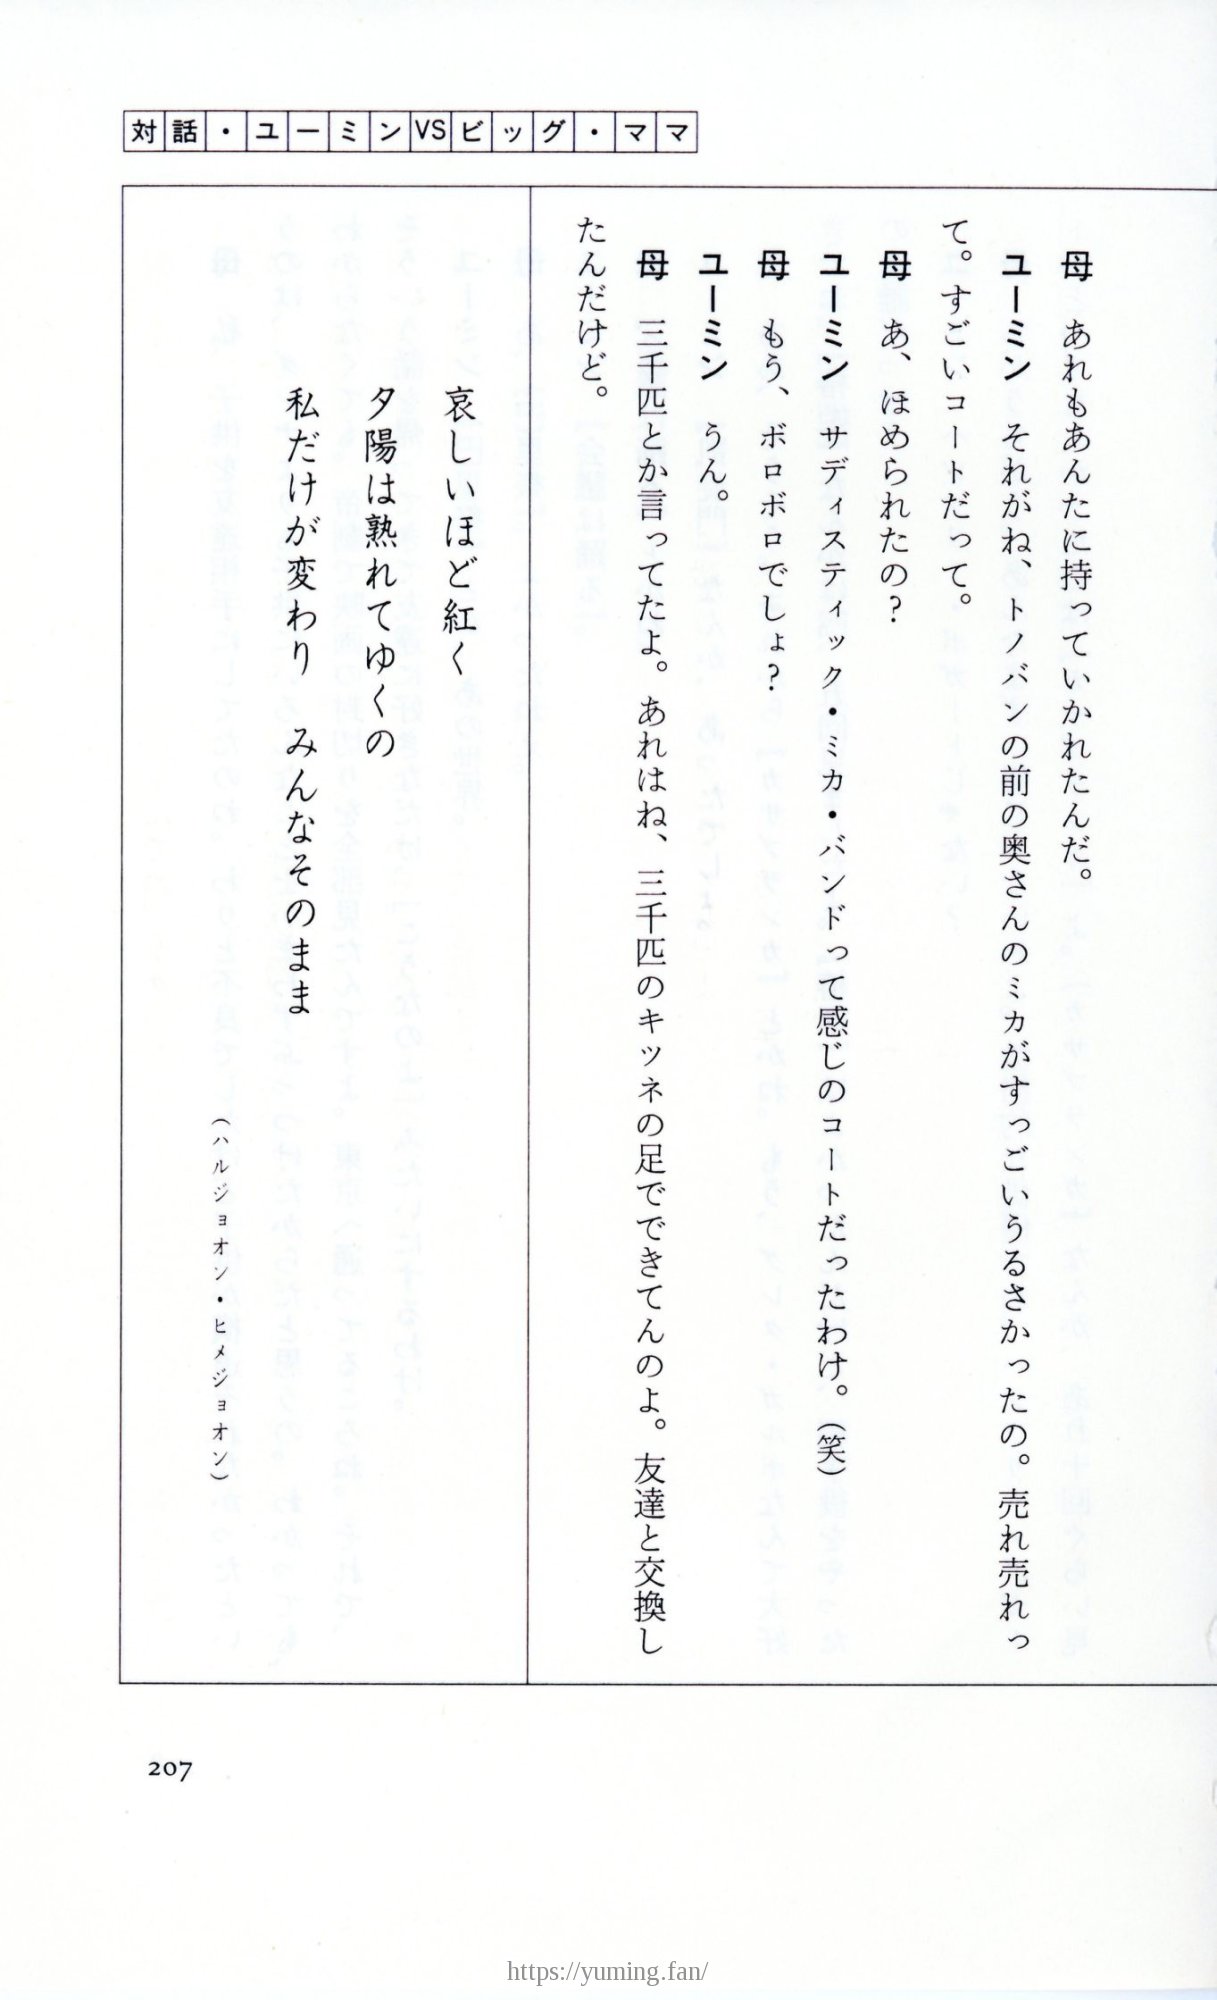 対話・ユーミンVSビッグ・ママ
母　あれもあんたに持っていかれたんだ。
ユーミン　それがね、トノバンの前の奥さんのミカがすっごいうるさかったの。売れ売れっ
て。すごいコートだって。
母　あ、ほめられたの？
ユーミン　サディスティック・ミカ・バンドって感じのコートだったわけ。（笑）
母　もう、ボロボロでしょ？
ユーミン　うん。
母　三千匹とか言ってたよ。あれはね、三千匹のキツネの足でできてんのよ。友達と交換し
たんだけど。
哀しいほど紅く
夕陽は熟れてゆくの
私だけが変わり　みんなそのまま
（ハルジョオン・ヒメジョオン）
207
https://yuming.fan/